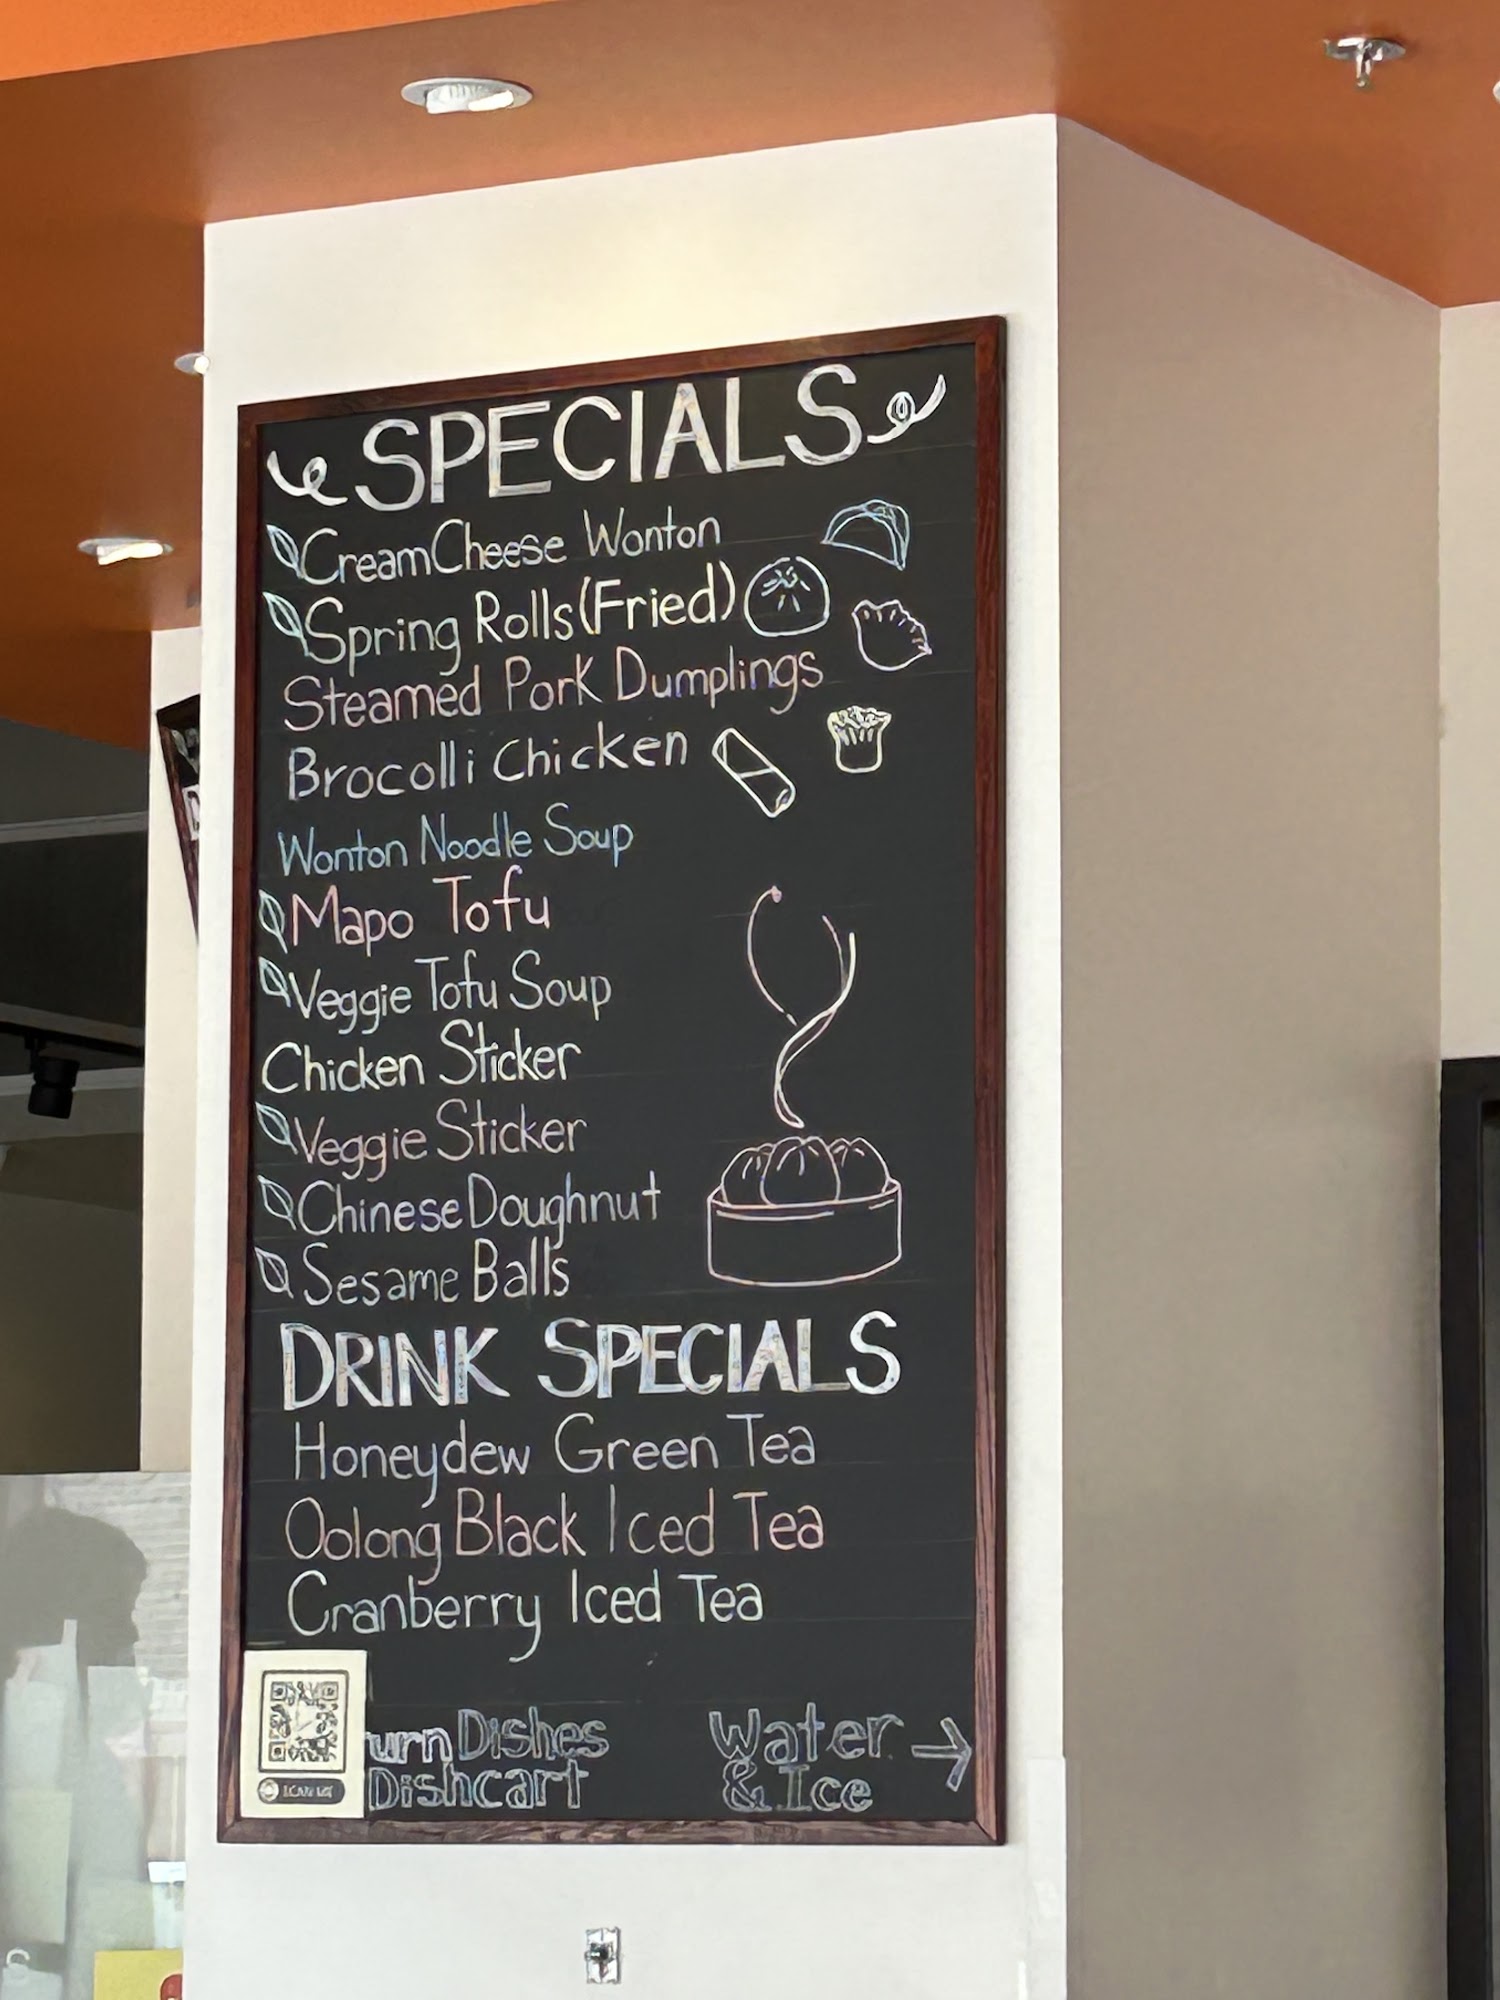 SPECIALS
Cream Cheese Wonton
Spring Rolls (Fried)
Steamed Pork Dumplings
Brocolli Chicken
Wonton Noodle Soup
Mapo Tofu
Veggie Tofu Soup
Chicken Sticker
Veggie Sticker
Chinese Doughnut
Sesame Balls
DRINK SPECIALS
Honeydew Green Tea
Oolong Black Iced Tea
Cranberry Iced Tea
urn Dishes
Dishcart
Water →
& Ice